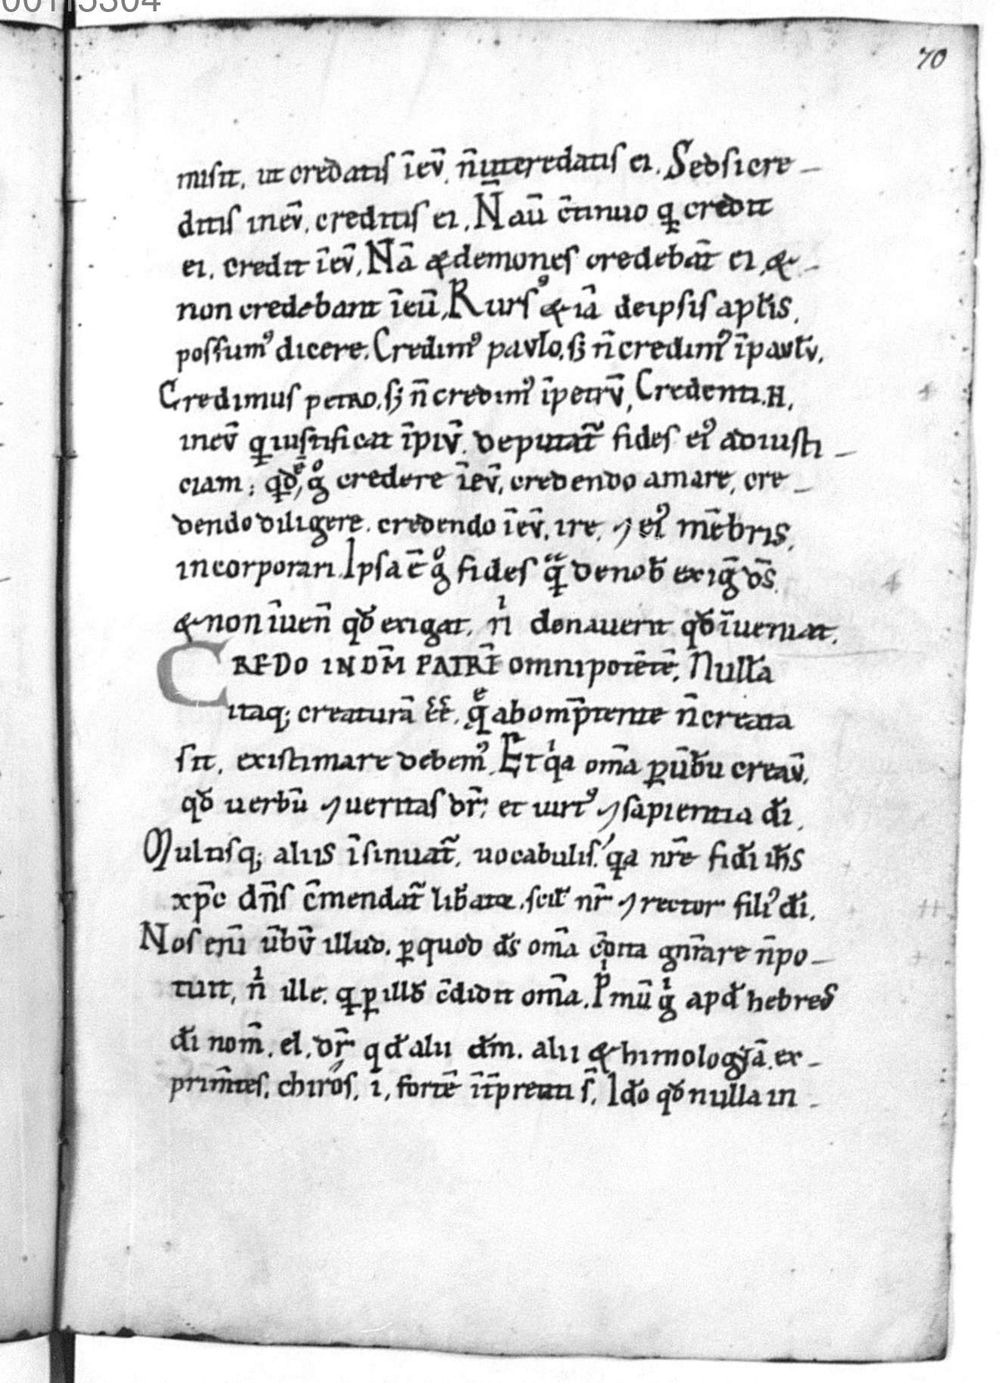 00113304
70
misit, ut credatis ĩ eũ, ñ ut credatis ei. Sed si cre-
ditis in eũ, creditis ei. Ñ aũ c̃tinuo q credit
ei, credit ĩ eũ. Nã & demones credebãt ei, &
non credebant ĩ eũ. Rurs᾿ & iã de ipsis aptis,
possum᾿ dicere. Credim᾿ paulo, s; ñ credim᾿ ĩ paulũ,
Credimus petro, s; ñ credim᾿ ĩ petrũ, Credenti.H,
in eũ q iustificat ĩpiũ, deputat̃ fides ei᾿ ad iusti-
ciam; credere ĩ eũ, credendo amare, cre-
dendo diligere, credendo ĩ eũ, ire, ⁊ ei᾿ mẽbris,
incorporari. Ipsa ẽ g fides q̃ de nob exig d̃s,
& non ĩueñ qđ exigat, ñ donauerit qđ ĩueniat.
CREDO IN DM̃ PATRẼ omnipotẽtẽ, Nullã
itaq; creaturã eẽ, q̃ ab omp̃tente ñ creata
sit, existimare debem᾿. Et q̾a om̃a p ũbũ creaũ,
qđ uerbũ ⁊ ueritas dr̃; et uirt᾿ ⁊ sapientia đi,
Multisq; aliis ĩsinuat̃, uocabulis, q̾a nr̃e fidi ih̃s
xp̃c dñs c̃mendat̃ liberat, nr̃ ⁊ rector fili᾿ đi.
Nos eni ũbũ illud, p quod đs om̃a c̃dita gñrare ñ po-
tuit, ñ ille, q p illũ c̃didit om̃a. P̾mũ g apđ hebreos
đi nom̃, el, dr̃ qđ alii đm, alii & himologiã ex-
prim̃tes, chiros, i, fortẽ ĩt̃pretati s̃, Iđo qđ nulla in-